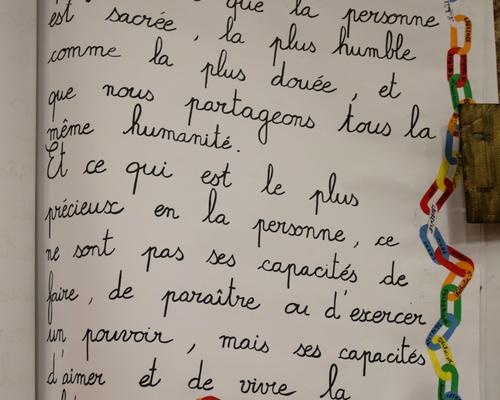 que la personne
est sacrée, la plus humble
comme la plus douée, et
que nous partageons tous la
même humanité.
Et ce qui est le plus
précieux en la personne, ce
ne sont pas ses capacités de
faire, de paraître ou d'exercer
un pouvoir, mais ses capacités
d'aimer et de vivre la